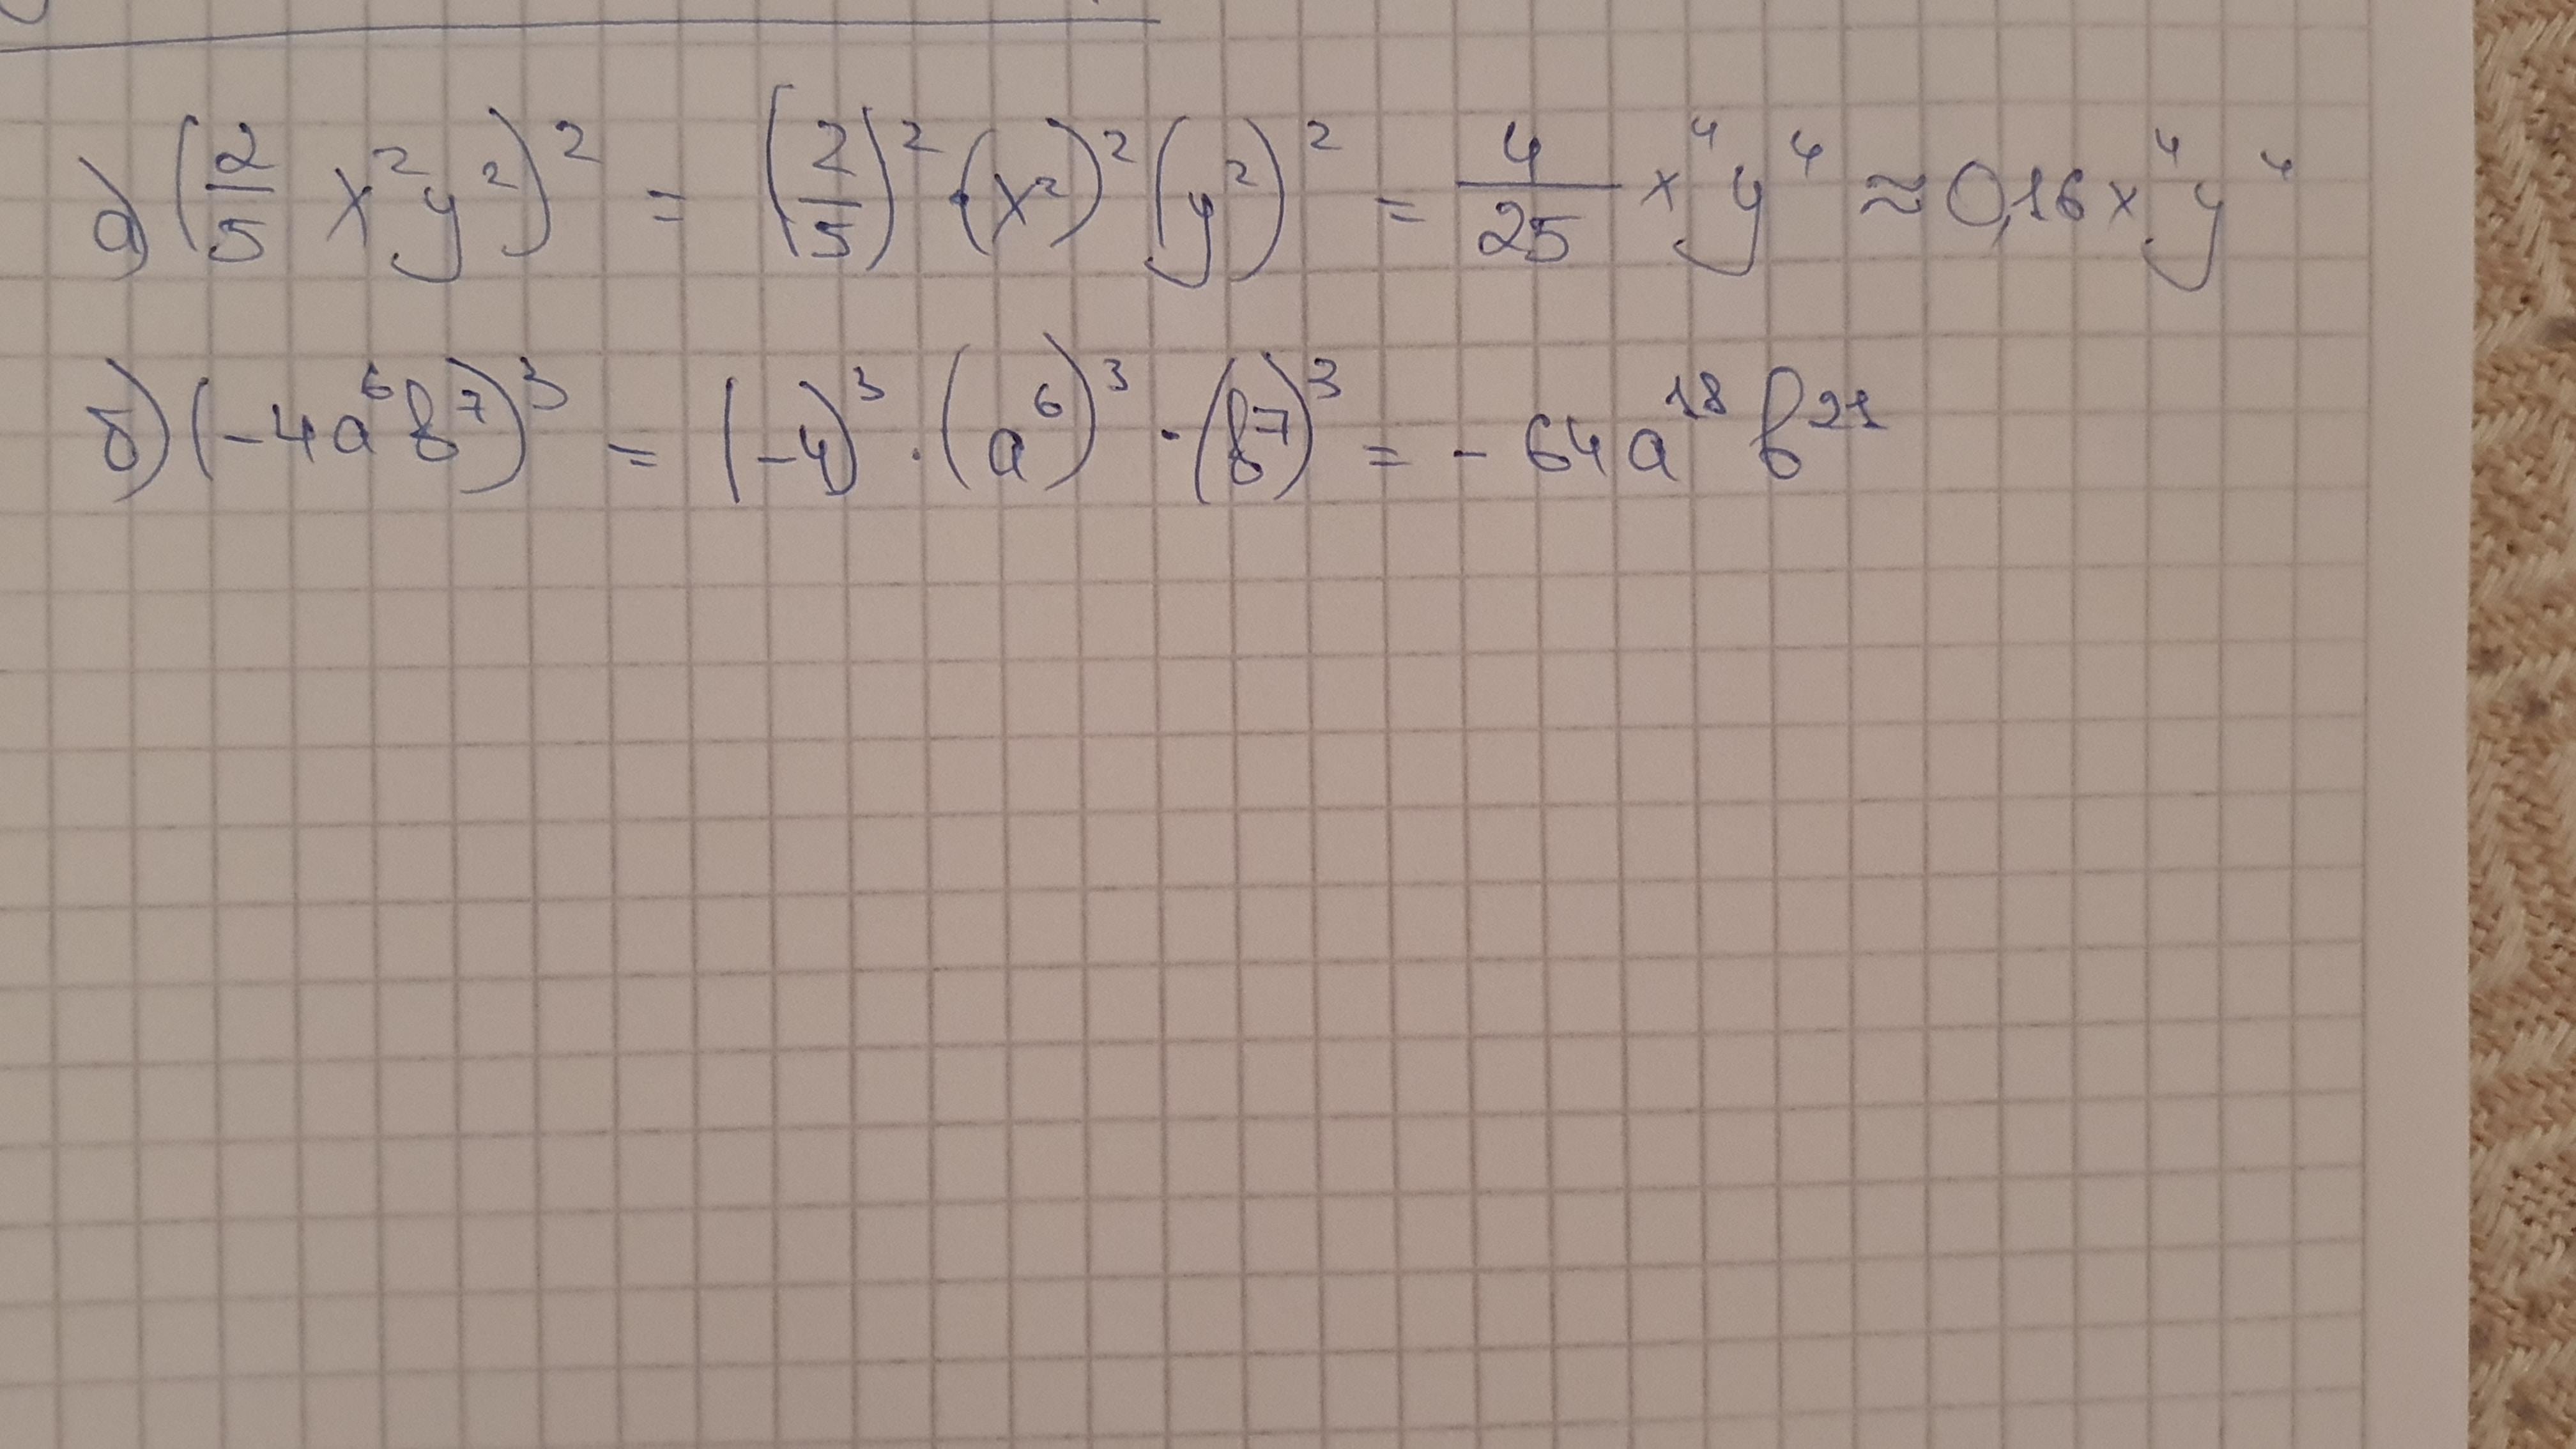 а) (2/5 x²y²)² = (2/5)² · (x²)² (y²)² = 4/25 x⁴y⁴ ≈ 0,16x⁴y⁴
б) (-4a⁶b⁷)³ = (-4)³ · (a⁶)³ · (b⁷)³ = - 64a¹⁸b²¹